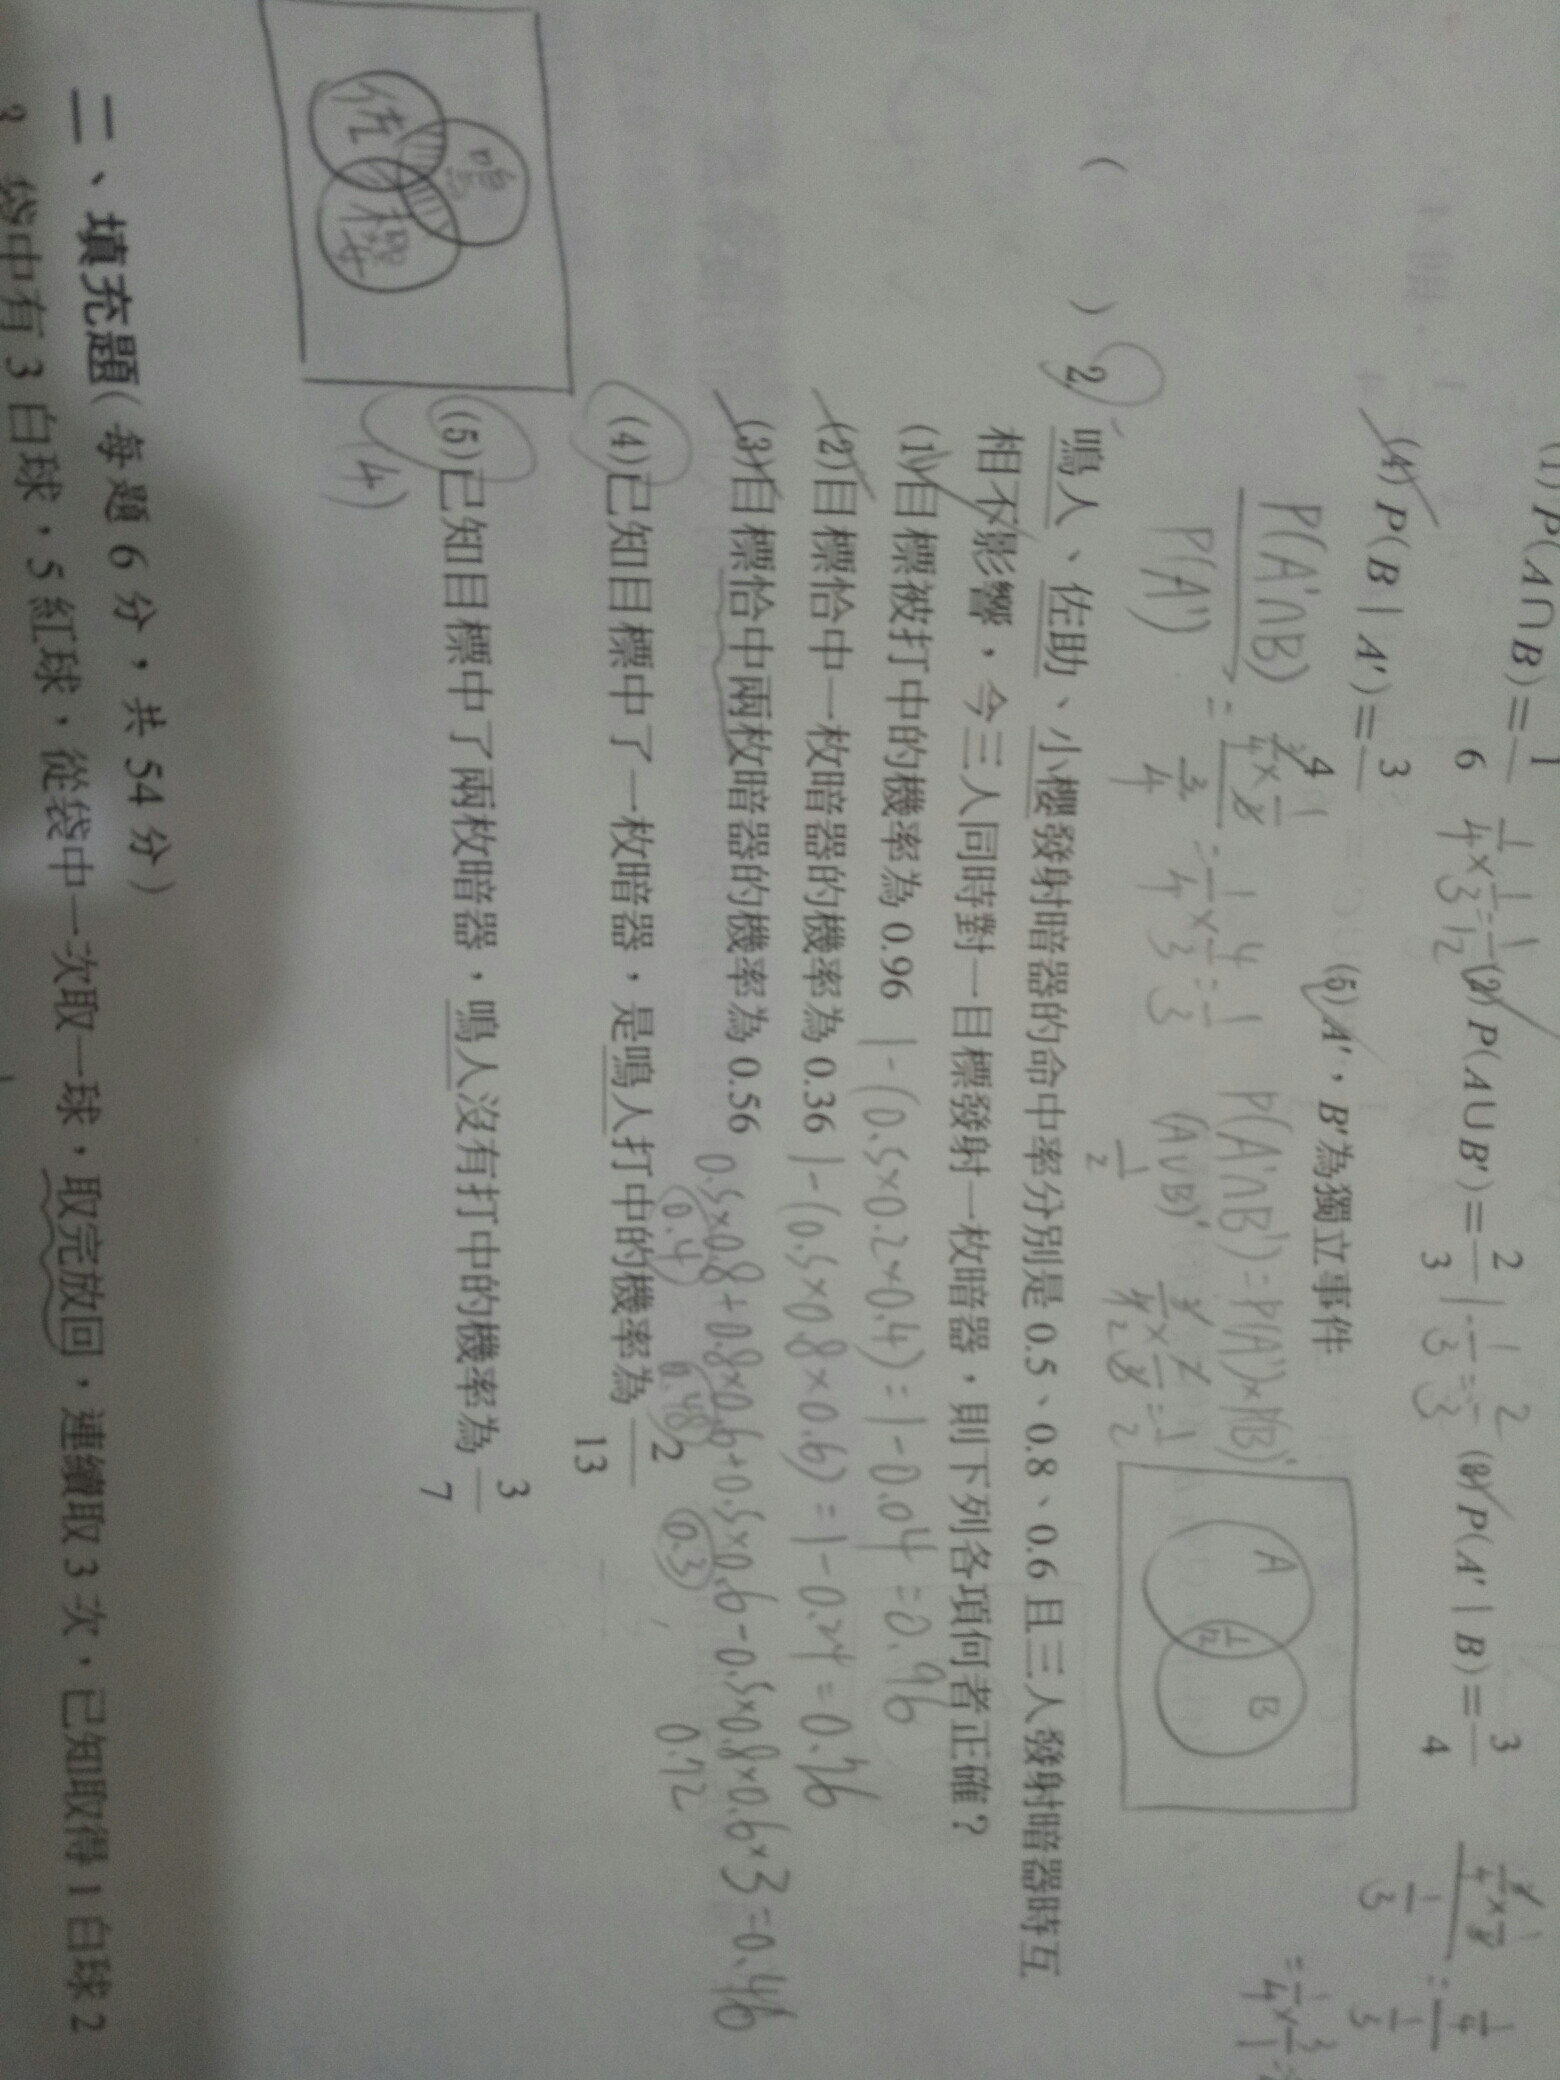 (1) P(A∩B)=1/6 1/4×1/3=1/12 (2) P(A∪B')=2/3 1-1/3=2/3 (3) P(A'|B)=3/4
(4) P(B|A')=3/4 (5) A',B'為獨立事件
P(A'∩B)/P(A')
P(A'∩B')=P(A')×P(B)'
(A∪B)'
1/2
A
B
1/12
( ) 2. 鳴人、佐助、小櫻發射暗器的命中率分別是 0.5、0.8、0.6 且三人發射暗器時互
相不影響,今三人同時對一目標發射一枚暗器,則下列各項何者正確?
(1)目標被打中的機率為 0.96 1-(0.5×0.2×0.4)=1-0.04=0.96
(2)目標恰中一枚暗器的機率為 0.36 1-(0.5×0.8×0.6)=1-0.24=0.76
(3)目標恰中兩枚暗器的機率為 0.56 0.5×0.8+0.8×0.6+0.5×0.6-0.5×0.8×0.6×3=0.46
0.4 0.48 0.3 0.72
(4)已知目標中了一枚暗器,是鳴人打中的機率為 2/13
(5)已知目標中了兩枚暗器,鳴人沒有打中的機率為 3/7
(4)
鳴
佐
櫻
二、填充題(每題 6 分,共 54 分)
3. 袋中有 3 白球,5 紅球,從袋中一次取一球,取完放回,連續取 3 次,已知取得 1 白球 2